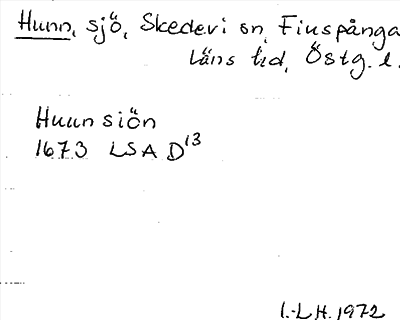 Hunn, sjö, Skedevi sn, Finspånga
läns hd, Östg. l.
Huun siön
1673 LSA D13
I.-L.H. 1972